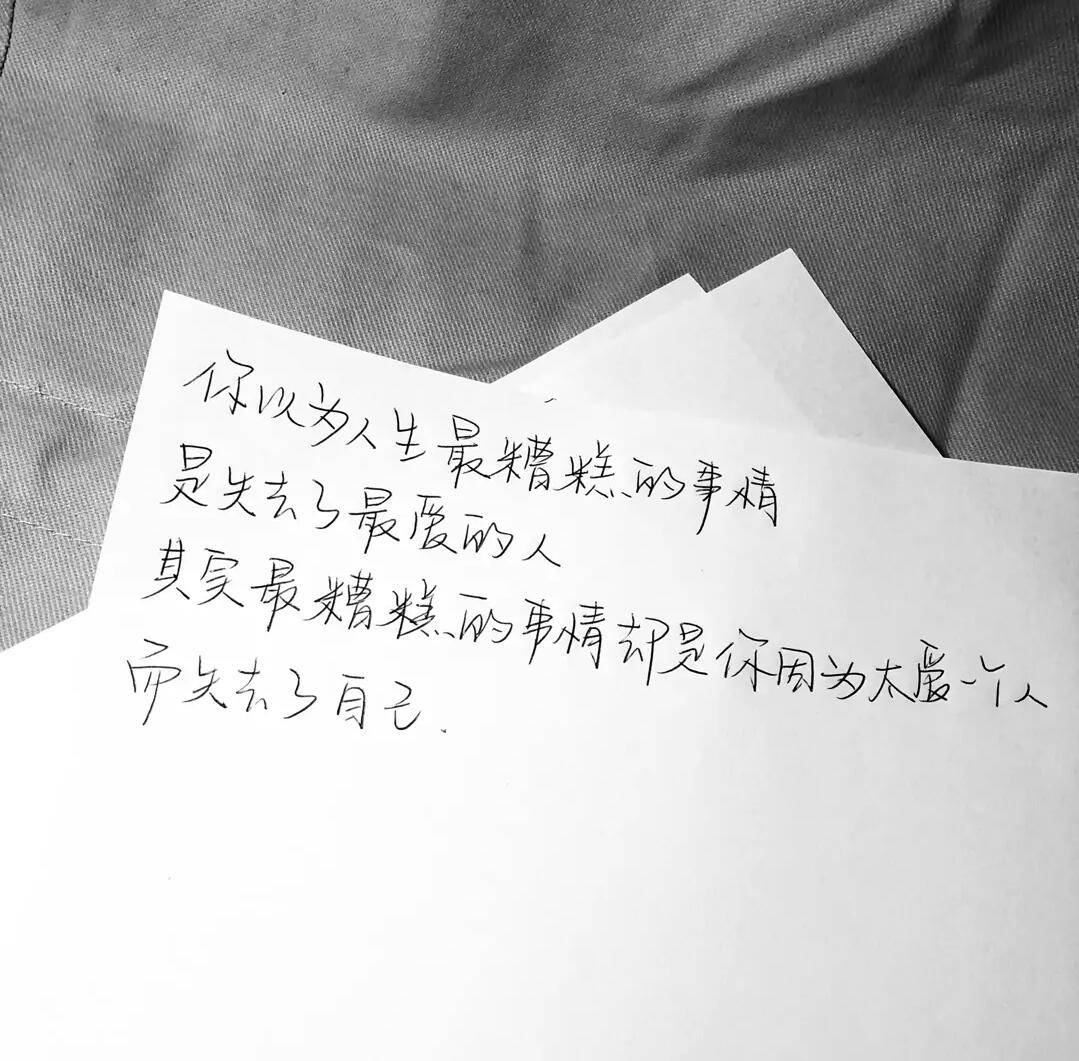 你以为人生最糟糕的事情
是失去了最爱的人
其实最糟糕的事情却是你因为太爱一个人
而失去了自己.